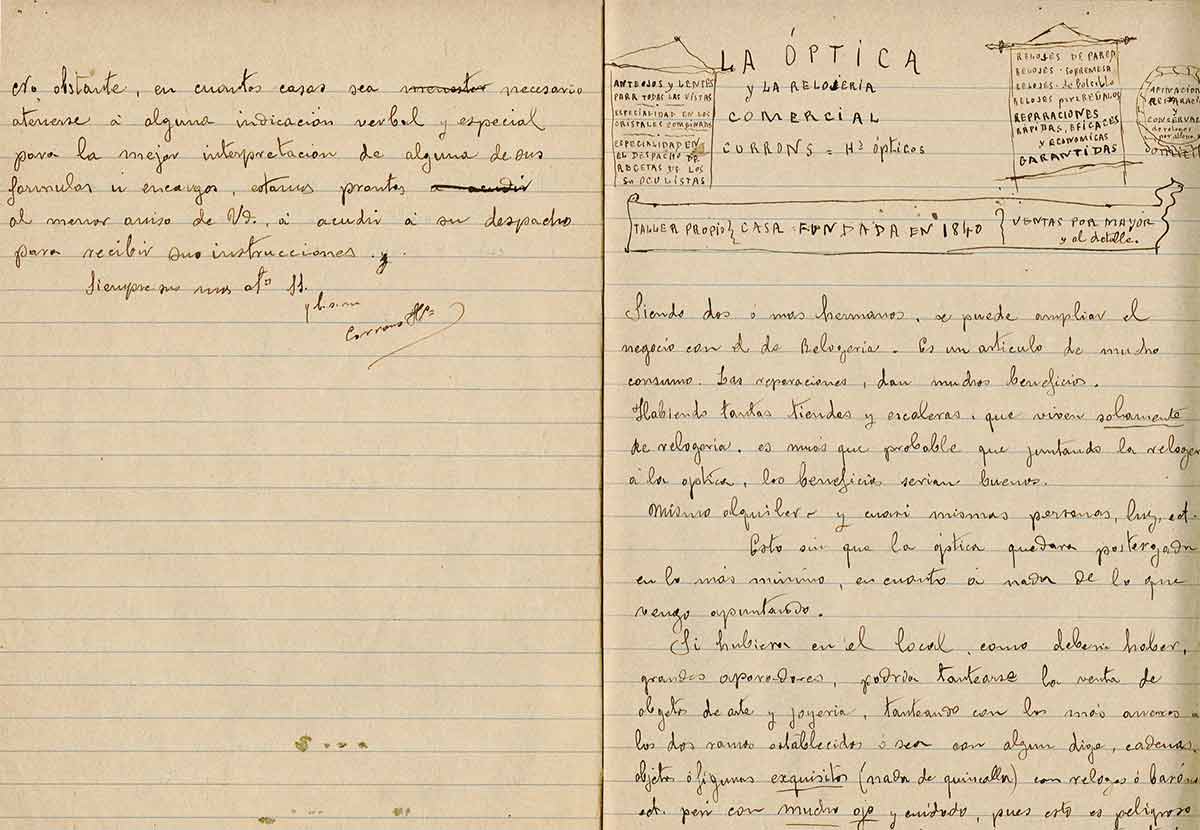 No obstante, en cuantos casos sea menester necesario
atenerse á alguna indicación verbal y especial
para la mejor interpretación de alguna de sus
formulas ú encargos, estamos prontos acudir
al menor aviso de Vd. á acudir á su despacho
para recibir sus instrucciones.
Siempre sus mas atºs SS.
Corrons Hºs
LA ÓPTICA
Y LA RELOJERÍA
COMERCIAL
CURRONS = Hs ópticos
ANTEOJOS Y LENTES
PARA TODAS LAS VISTAS
ESPECIALIDAD EN LOS
CRISTALES COMBINADOS
ESPECIALIDAD EN
EL DESPACHO DE
RECETAS DE LOS
Srs OCULISTAS
RELOJES DE PARED
RELOJES - SOBREMESA
RELOJES - de Bolsillo
RELOJES para REGALOS
REPARACIONES
RÁPIDAS, EFICACES
Y ECONOMICAS
GARANTIDAS
AFINACION
REPARAC
CONSERVAC
de relojes
DOMICI
TALLER PROPIO
CASA = FUNDADA EN 1840
VENTAS POR MAYOR
y al detalle.
Siendo dos o mas hermanos, se puede ampliar el
negocio con el de Relogería. Es un articulo de mucho
consumo. Las reparaciones, dan muchos beneficios.
Habiendo tantas tiendas y escaleras, que viven solamente
de relogería, es más que probable que juntando la reloger
á la optica, los beneficios serian buenos.
Mismo alquiler y cuasi mismas personas, luz, ect.
Esto sin que la óptica quedara postergada
en lo más minimo, en cuanto á nada de lo que
vengo apuntando.
Si hubiera en él local, como deberia haber,
grandes aparadores, podría tantearse la venta de
objetos de arte y joyería, tanteando con los más anexos á
los dos ramos establecidos ó sea con algun dige, cadenas,
objetos ó figuras exquisitos (nada de quincalla) con reloges ó baró
ect. peró con mucho ojo y cuidado, pues esto es peligroso